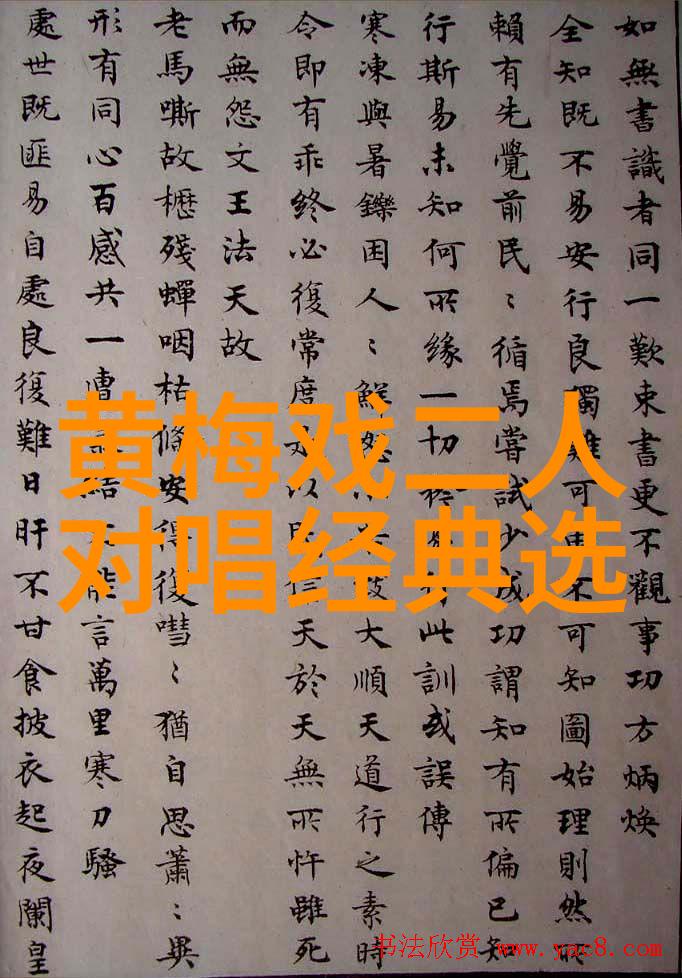 黄梅戏二人
对唱经典选
如無書識者同一歎束書更不觀事功方炳煥
全知既不易安行良獨難可不可知圖始理則然所
賴有先覺前民〻循焉嘗試少成功謂知有所偏已知
行斯易未知何所緣一切易此訓或誤傳
寒凍與暑鑠困人〻鮮怨大順天道行之素時
令即有乖終必復常度以民信天於天無所忤雖死
而無怨文王法天故
老馬嘶故櫪殘蟬咽枯條安得復嘒〻猶自思蕭〻異
形有同心百感共一結不能言萬里寒刀騷
處世既匪易自處良復難日旰不甘食披衣起夜闌皇
书法欣赏 www.yac8.com